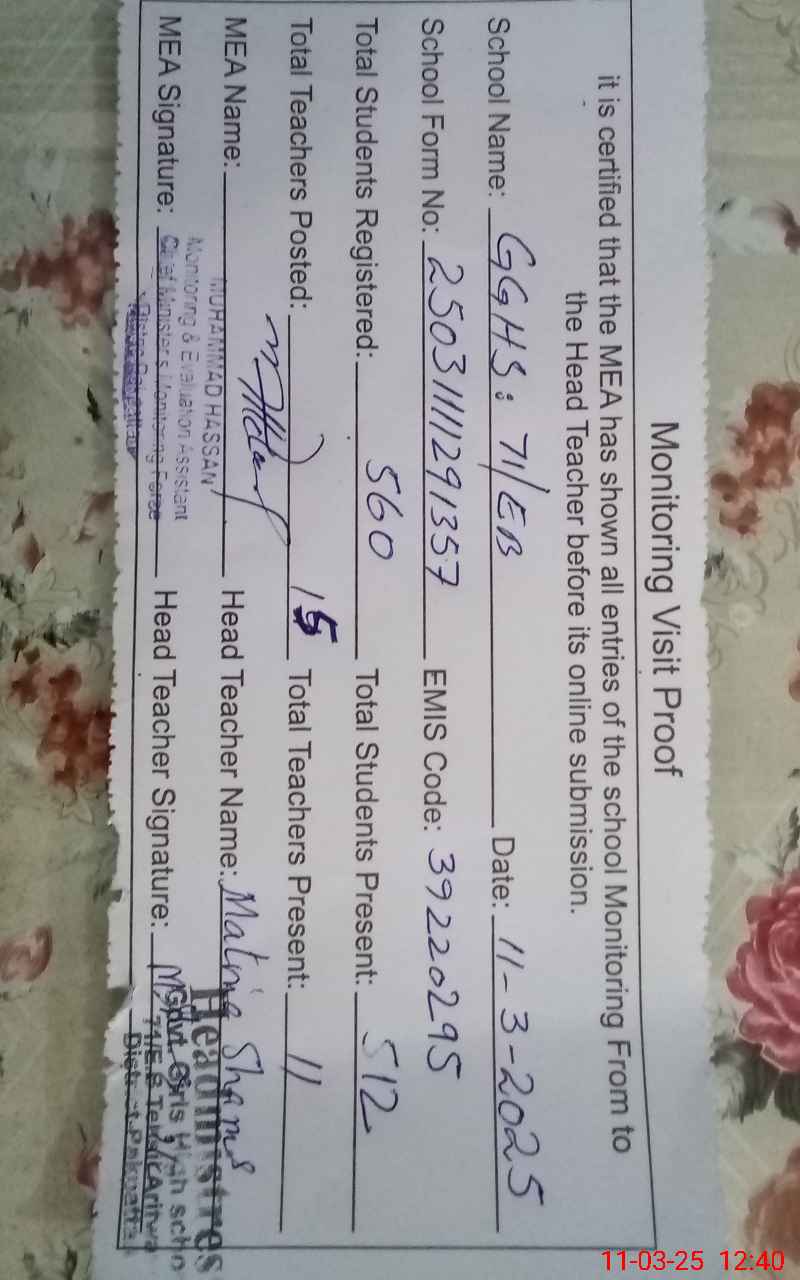 Monitoring Visit Proof
it is certified that the MEA has shown all entries of the school Monitoring From to
the Head Teacher before its online submission.
School Name: GGHS: 71/EB Date: 11-3-2025
School Form No: 2503111129 1357 EMIS Code: 39220295
Total Students Registered: 560 Total Students Present: 512
Total Teachers Posted: 15 Total Teachers Present: 11
MEA Name: MUHAMMAD HASSAN Head Teacher Name: Matina Shams
Monitoring & Evaluation Assistant
MEA Signature: Chief Minister's Monitoring Force Head Teacher Signature:
Headmistres
Govt. Girls High scho
71/E.B
District Pakpattan
11-03-25 12:40